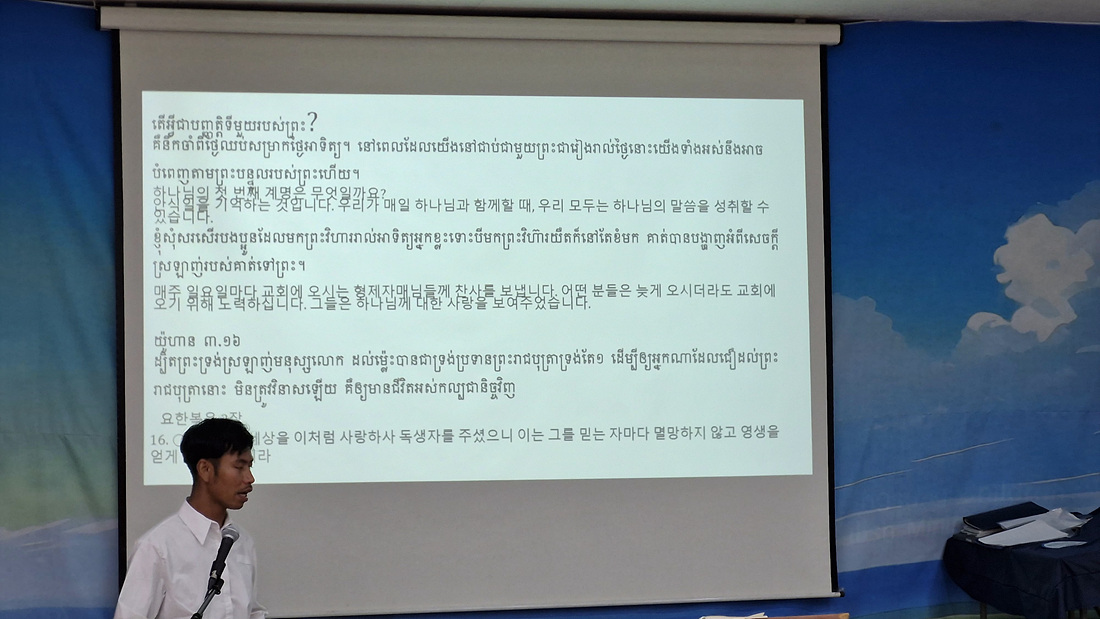 តើអ្វីជាបញ្ញត្តិទីមួយរបស់ព្រះ?
គឺនឹកចាំពីថ្ងៃឈប់សម្រាកថ្ងៃអាទិត្យ។ នៅពេលដែលយើងនៅជាប់ជាមួយព្រះជារៀងរាល់ថ្ងៃនោះយើងទាំងអស់នឹងអាច
បំពេញតាមព្រះបន្ទូលរបស់ព្រះហើយ។
하나님의 첫 번째 계명은 무엇일까요?
안식일을 기억하는 것입니다. 우리가 매일 하나님과 함께할 때, 우리 모두는 하나님의 말씀을 성취할 수
있습니다.
ខ្ញុំសុំសរសើរបងប្អូនដែលមកព្រះវិហាររាល់អាទិត្យអ្នកខ្លះទោះបីមកព្រះវិហ៊ារយឺតក៏នៅតែខំមក គាត់បានបង្ហាញអំពីសេចក្តី
ស្រឡាញ់របស់គាត់ទៅព្រះ។
매주 일요일마다 교회에 오시는 형제자매님들께 찬사를 보냅니다. 어떤 분들은 늦게 오시더라도 교회에
오기 위해 노력하십니다. 그들은 하나님께 대한 사랑을 보여주었습니다.
យ៉ូហាន ៣.១៦
ដ្បិតព្រះទ្រង់ស្រឡាញ់មនុស្សលោក ដល់ម៉្លេះបានជាទ្រង់ប្រទានព្រះរាជបុត្រាទ្រង់តែ១ ដើម្បីឲ្យអ្នកណាដែលជឿដល់ព្រះ
រាជបុត្រានោះ មិនត្រូវវិនាសឡើយ គឺឲ្យមានជីវិតអស់កល្បជានិច្ចវិញ
요한복음 3장
16. 세상을 이처럼 사랑하사 독생자를 주셨으니 이는 그를 믿는 자마다 멸망하지 않고 영생을
얻게